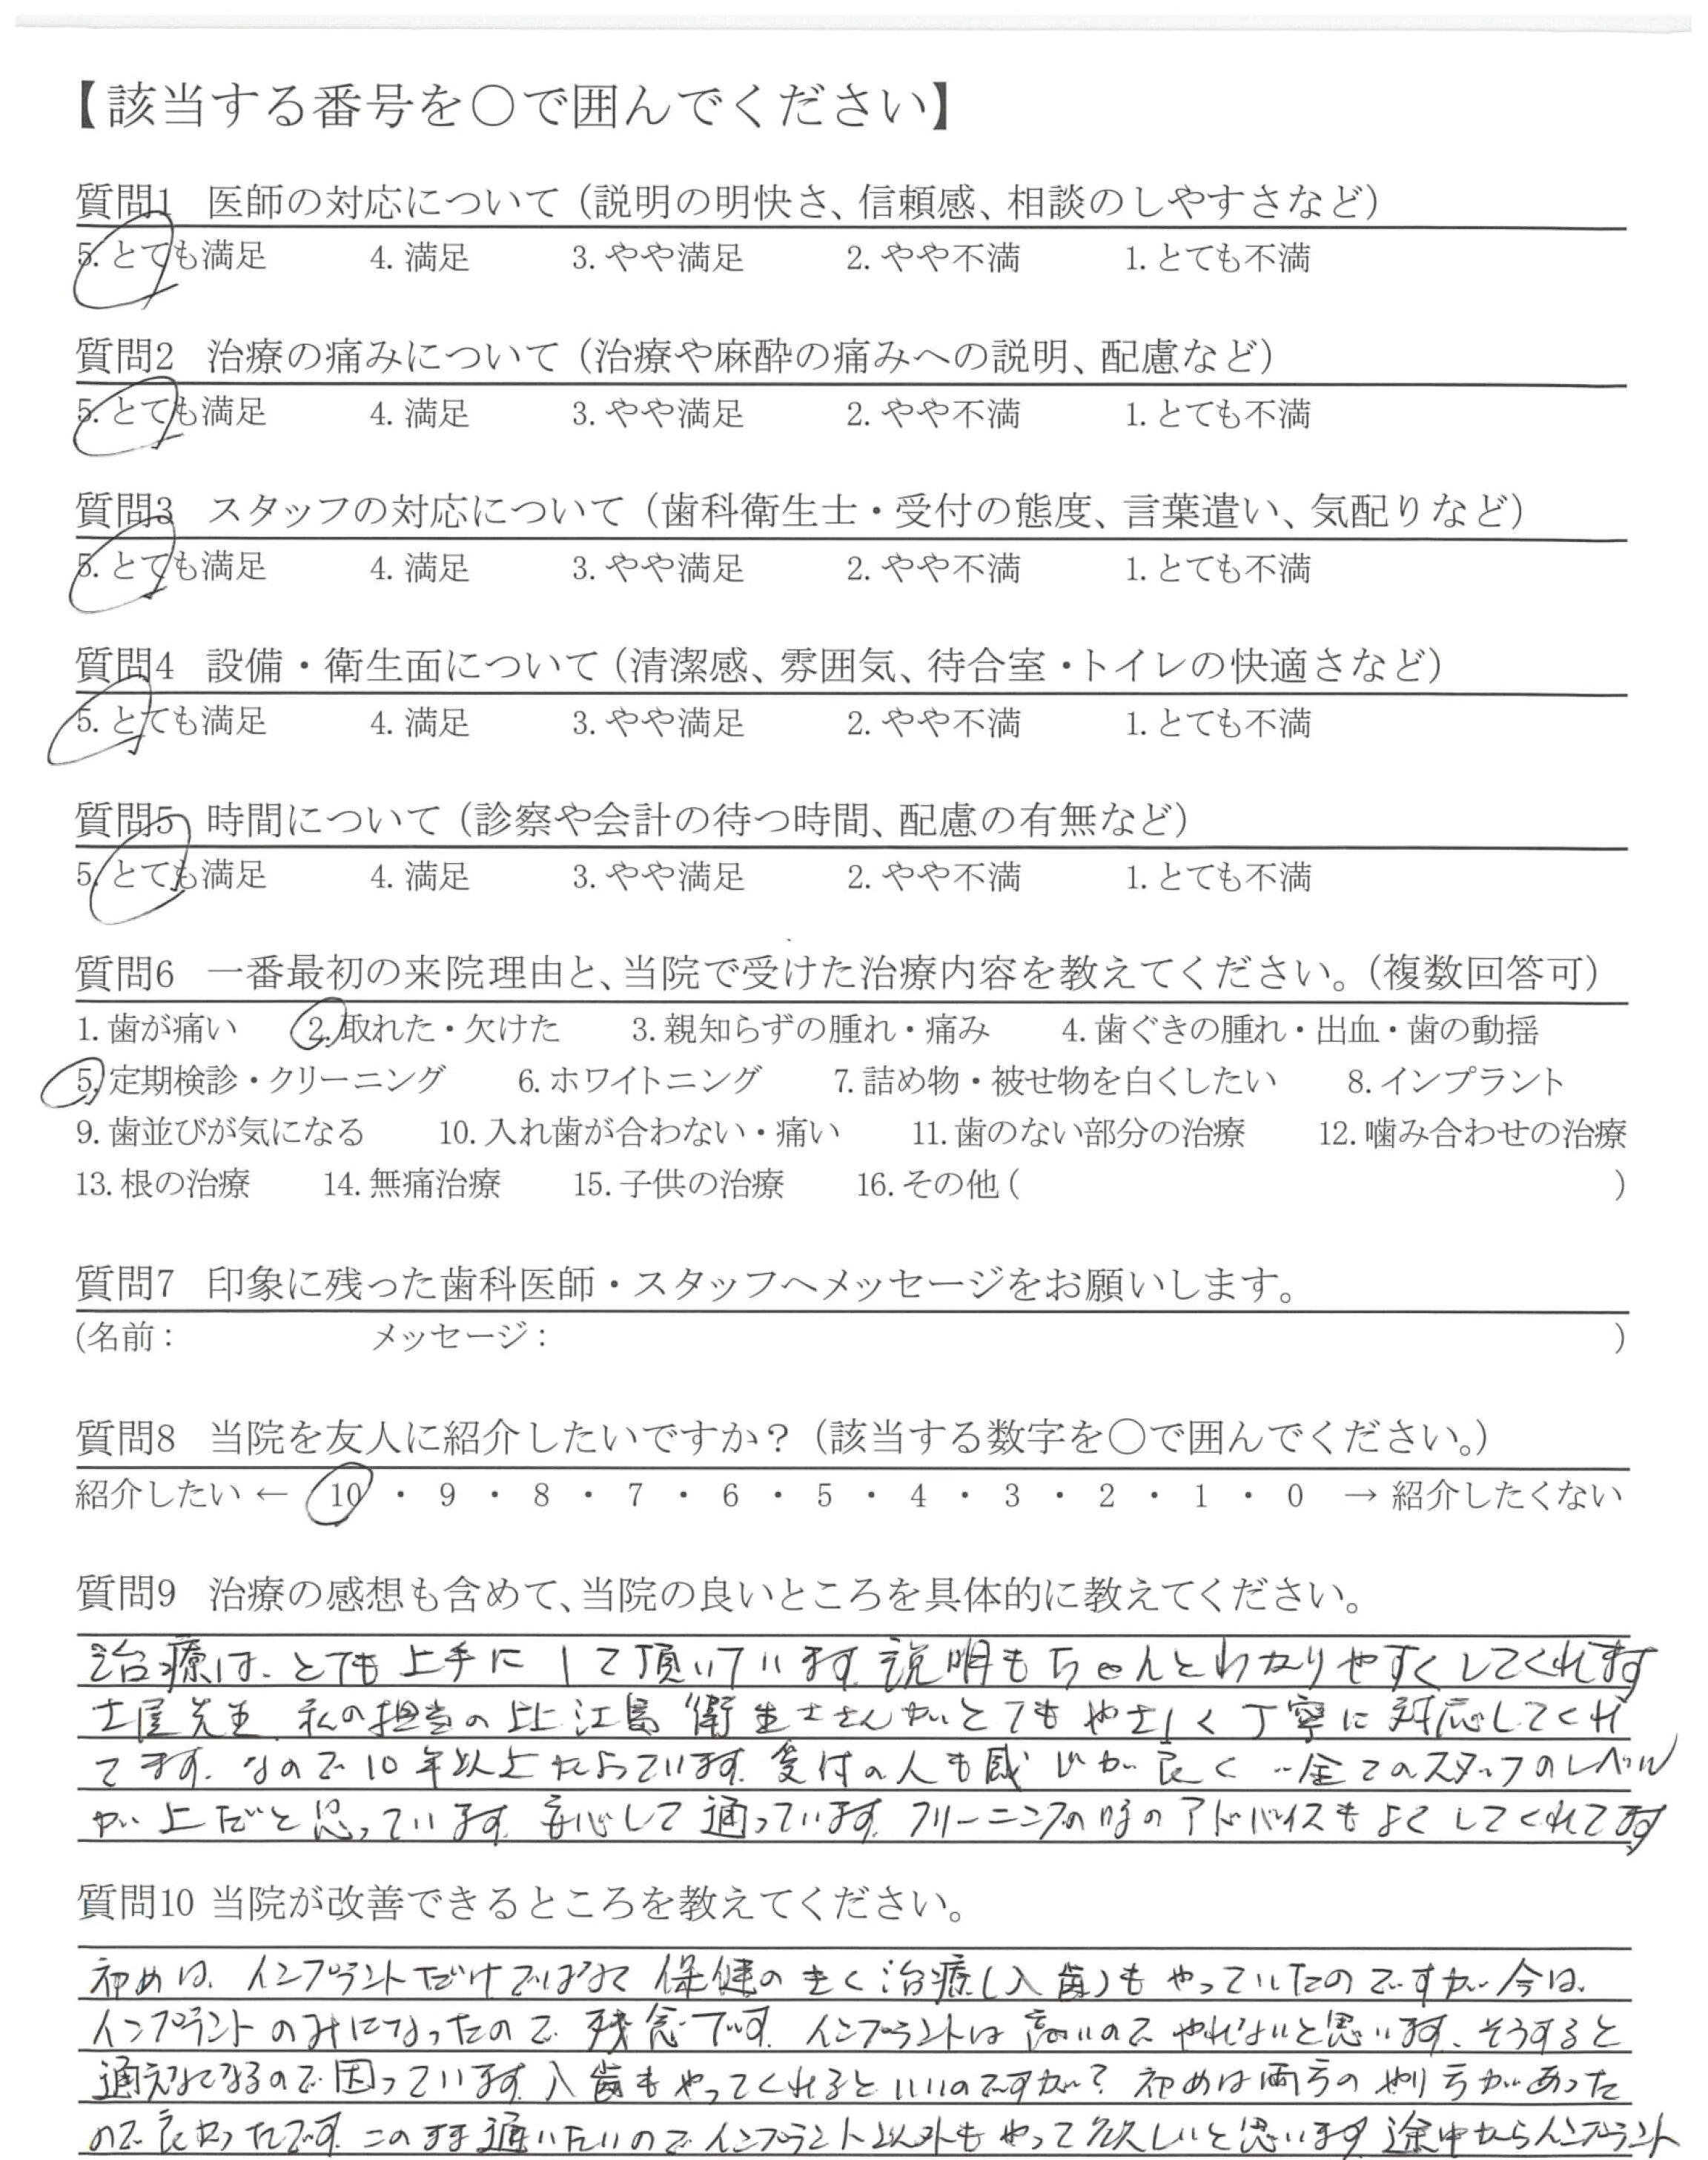 【該当する番号を○で囲んでください】
質問1 医師の対応について（説明の明快さ、信頼感、相談のしやすさなど）
5. とても満足 4. 満足 3. やや満足 2. やや不満 1. とても不満
質問2 治療の痛みについて（治療や麻酔の痛みへの説明、配慮など）
5. とても満足 4. 満足 3. やや満足 2. やや不満 1. とても不満
質問3 スタッフの対応について（歯科衛生士・受付の態度、言葉遣い、気配りなど）
5. とても満足 4. 満足 3. やや満足 2. やや不満 1. とても不満
質問4 設備・衛生面について（清潔感、雰囲気、待合室・トイレの快適さなど）
5. とても満足 4. 満足 3. やや満足 2. やや不満 1. とても不満
質問5 時間について（診察や会計の待つ時間、配慮の有無など）
5. とても満足 4. 満足 3. やや満足 2. やや不満 1. とても不満
質問6 一番最初の来院理由と、当院で受けた治療内容を教えてください。（複数回答可）
1. 歯が痛い 2. 取れた・欠けた 3. 親知らずの腫れ・痛み 4. 歯ぐきの腫れ・出血・歯の動揺
5. 定期検診・クリーニング 6. ホワイトニング 7. 詰め物・被せ物を白くしたい 8. インプラント
9. 歯並びが気になる 10. 入れ歯が合わない・痛い 11. 歯のない部分の治療 12. 噛み合わせの治療
13. 根の治療 14. 無痛治療 15. 子供の治療 16. その他 ( )
質問7 印象に残った歯科医師・スタッフへメッセージをお願いします。
(名前： メッセージ： )
質問8 当院を友人に紹介したいですか？（該当する数字を○で囲んでください。）
紹介したい ← 10 ・ 9 ・ 8 ・ 7 ・ 6 ・ 5 ・ 4 ・ 3 ・ 2 ・ 1 ・ 0 → 紹介したくない
質問9 治療の感想も含めて、当院の良いところを具体的に教えてください。
治療は、とても上手にして頂いています。説明もちゃんとわかりやすくしてくれます
土屋先生 私の担当の 比江島 衛生士さんがとてもやさしく丁寧に対応してくれ
てます。なので10年以上たよっています。受付の人も感じが良く 全てのスタッフのレベル
が上だと思っています。安心して通っています。クリーニングの時のアドバイスもよくしてくれてます
質問10 当院が改善できるところを教えてください。
初めは、インプラントだけではなくて保健のきく治療(入歯)もやっていたのですが今は、
インプラントのみになったので残念です。インプラントは高いのでやれないと思います、そうすると
通えなくなるので困っています。入歯もやってくれるといいのですが？ 初めは両方のやり方があった
ので良かったです。このまま通いたいのでインプラント以外もやって欲しいと思います。途中からインプラント